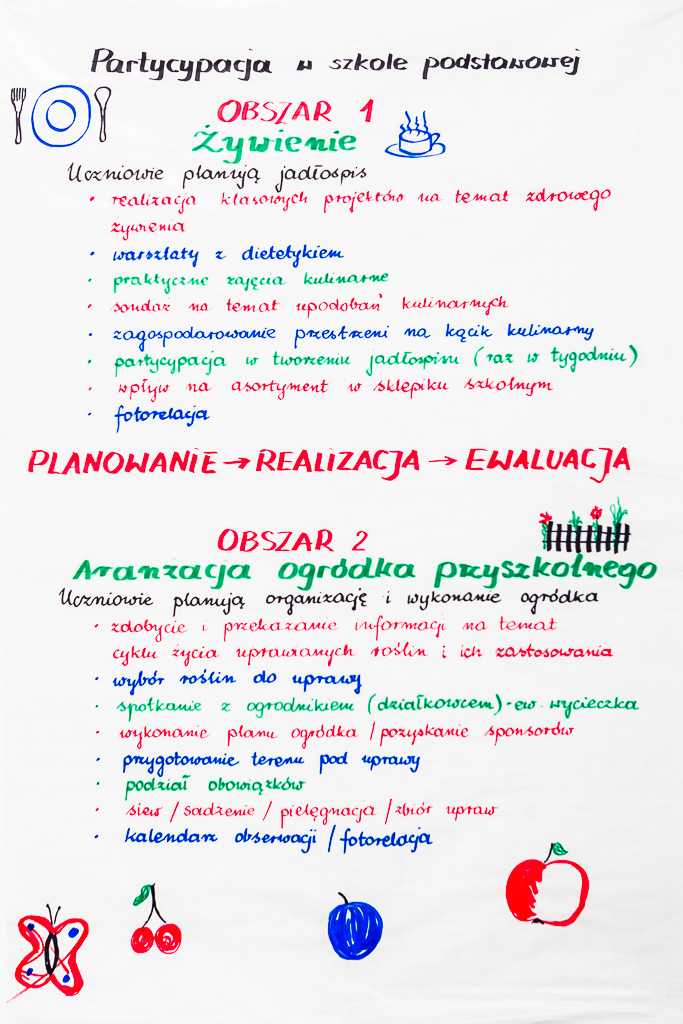 Partycypacja w szkole podstawowej
OBSZAR 1
Żywienie
Uczniowie planują jadłospis
• realizacja klasowych projektów na temat zdrowego
żywienia
• warsztaty z dietetykiem
• praktyczne zajęcia kulinarne
• sondaż na temat upodobań kulinarnych
• zagospodarowanie przestrzeni na kącik kulinarny
• partycypacja w tworzeniu jadłospisu (raz w tygodniu)
• wpływ na asortyment w sklepiku szkolnym
• fotorelacja
PLANOWANIE → REALIZACJA → EWALUACJA
OBSZAR 2
Aranżacja ogródka przyszkolnego
Uczniowie planują organizację i wykonanie ogródka
• zdobycie i przekazanie informacji na temat
cyklu życia uprawianych roślin i ich zastosowania
• wybór roślin do uprawy
• spotkanie z ogrodnikiem (działkowcem) • ew. wycieczka
• wykonanie planu ogródka / pozyskanie sponsorów
• przygotowanie terenu pod uprawy
• podział obowiązków
• siew / sadzenie / pielęgnacja / zbiór upraw
• kalendarz obserwacji / fotorelacja